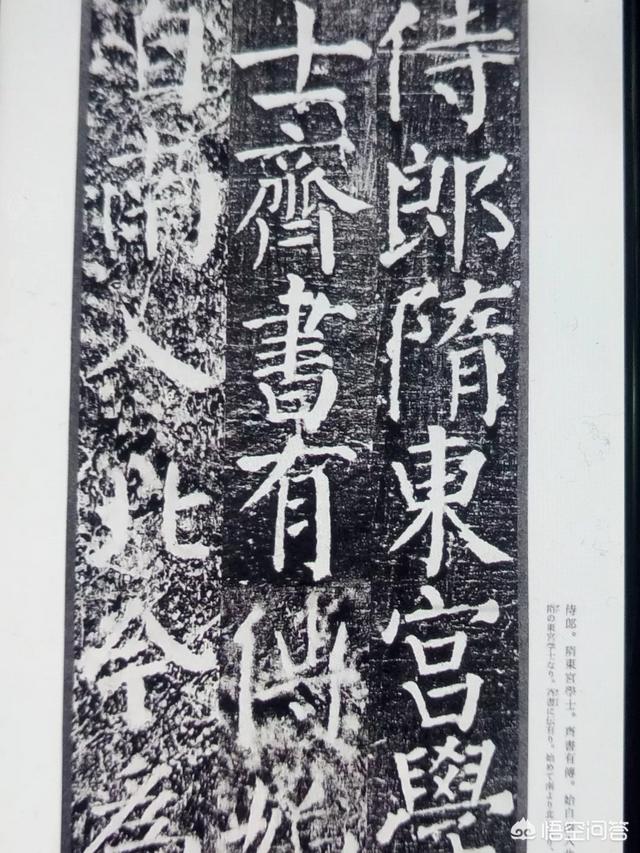 侍郎隋東宮學
士齊書有傳始
自南入北今為
侍郎。隋東宮學士。齊書有傳。始自南入北
隋の東宮學士なり。齊書に伝有り。始めて南より北
悟空问答